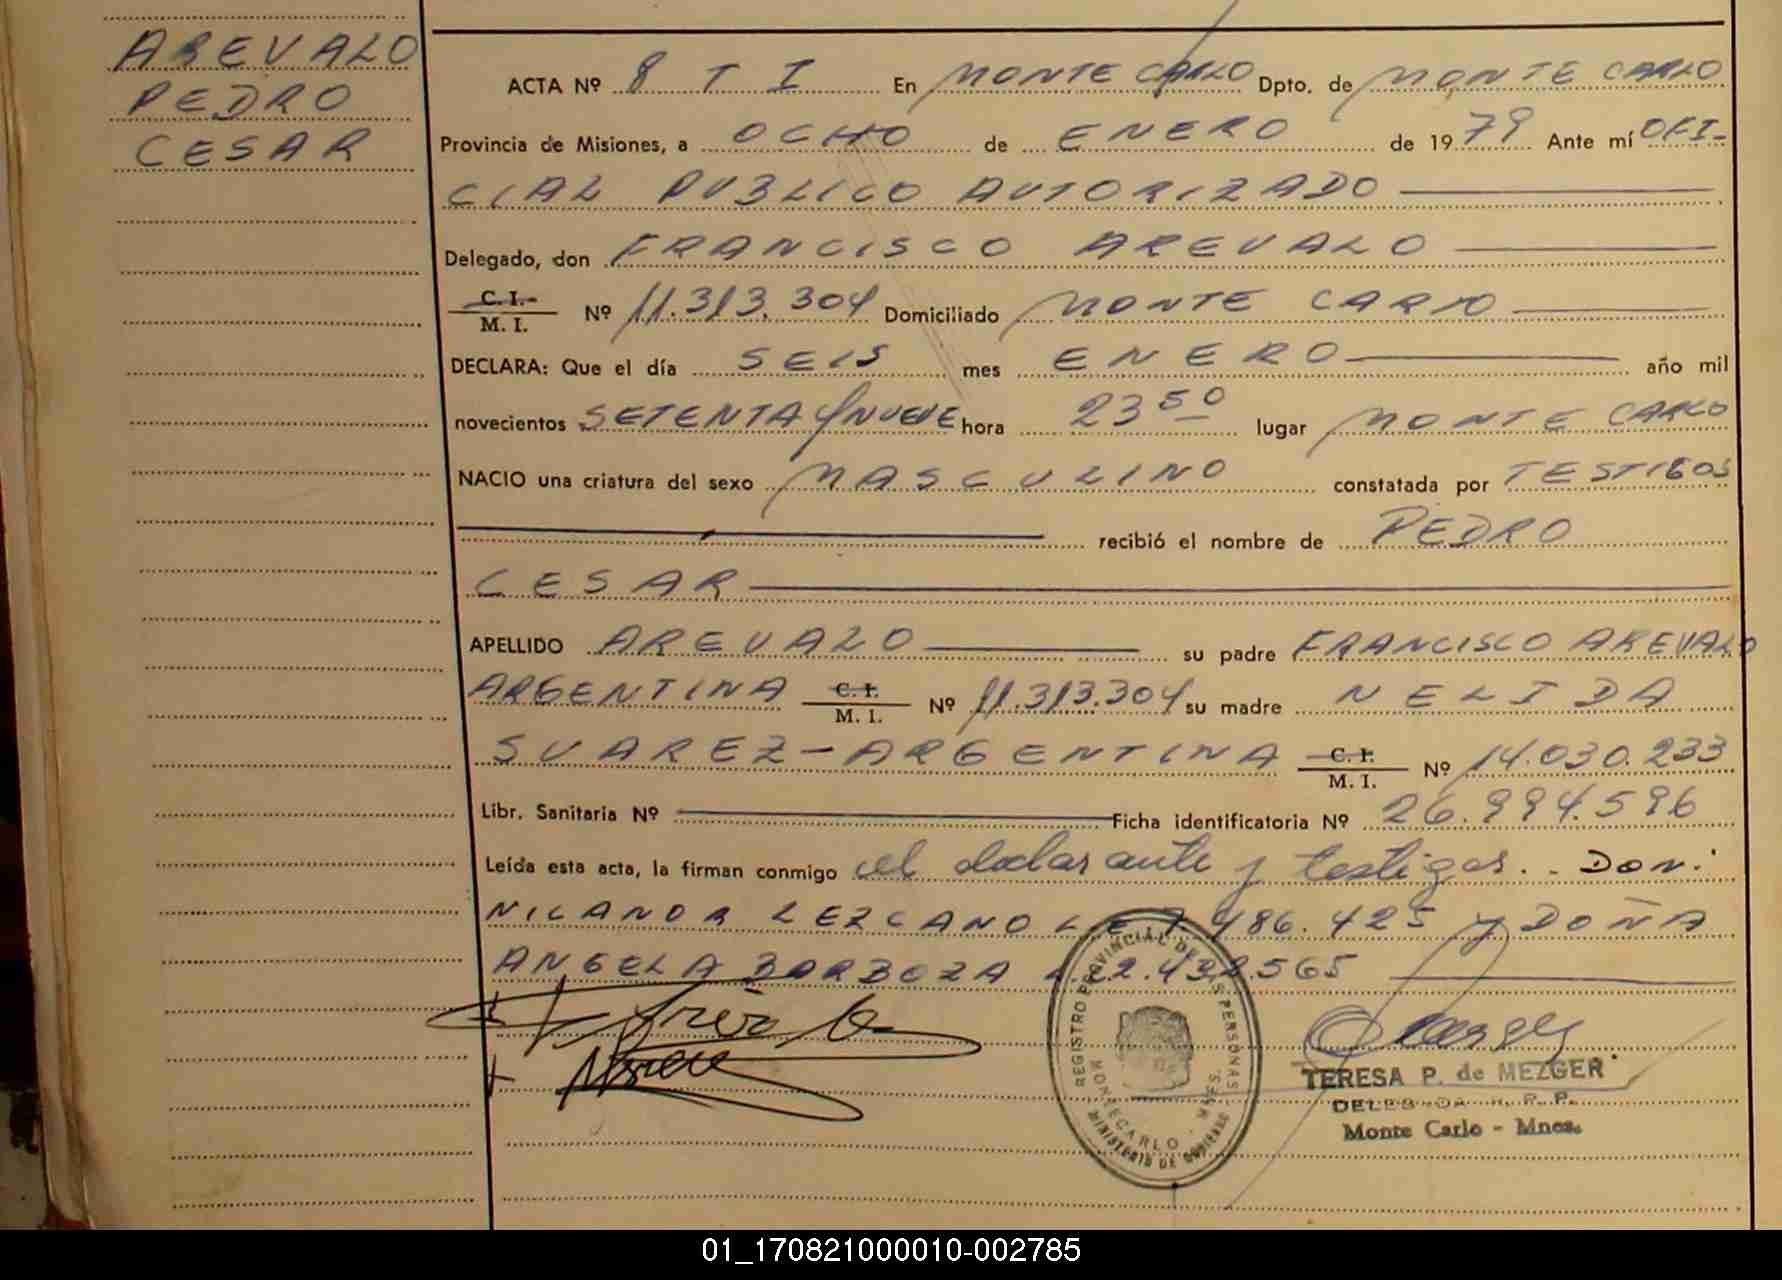 AREVALO
PEDRO
CESAR
ACTA Nº 8 T I En MONTE CARLO Dpto. de MONTE CARLO
Provincia de Misiones, a OCHO de ENERO de 1979 Ante mí OFI-
CIAL PUBLICO AUTORIZADO
Delegado, don FRANCISCO AREVALO
C. I.-
M. I. Nº 11.313.304 Domiciliado MONTE CARLO
DECLARA: Que el día SEIS mes ENERO año mil
novecientos SETENTA Y NUEVE hora 23 50 lugar MONTE CARLO
NACIO una criatura del sexo MASCULINO constatada por TESTIGOS
recibió el nombre de PEDRO
CESAR
APELLIDO AREVALO su padre FRANCISCO AREVALO
ARGENTINA C. I. M. I. Nº 11.313.304 su madre NELIDA
SUAREZ - ARGENTINA C. I. M. I. Nº 14.030.233
Libr. Sanitaria Nº Ficha identificatoria Nº 26.994.596
Leída esta acta, la firman conmigo el declarante y testigos.. DON:
NICANOR LEZCANO LE 7.486.425 y DOÑA
ANGELA BARBOZA
REGISTRO PROVINCIAL DE LAS PERSONAS
MONTECARLO - MNES.
MINISTERIO DE GOBIERNO
TERESA P. de MEZGER
DELEGADA R. P. P.
Monte Carlo - Mnes.
01_170821000010-002785